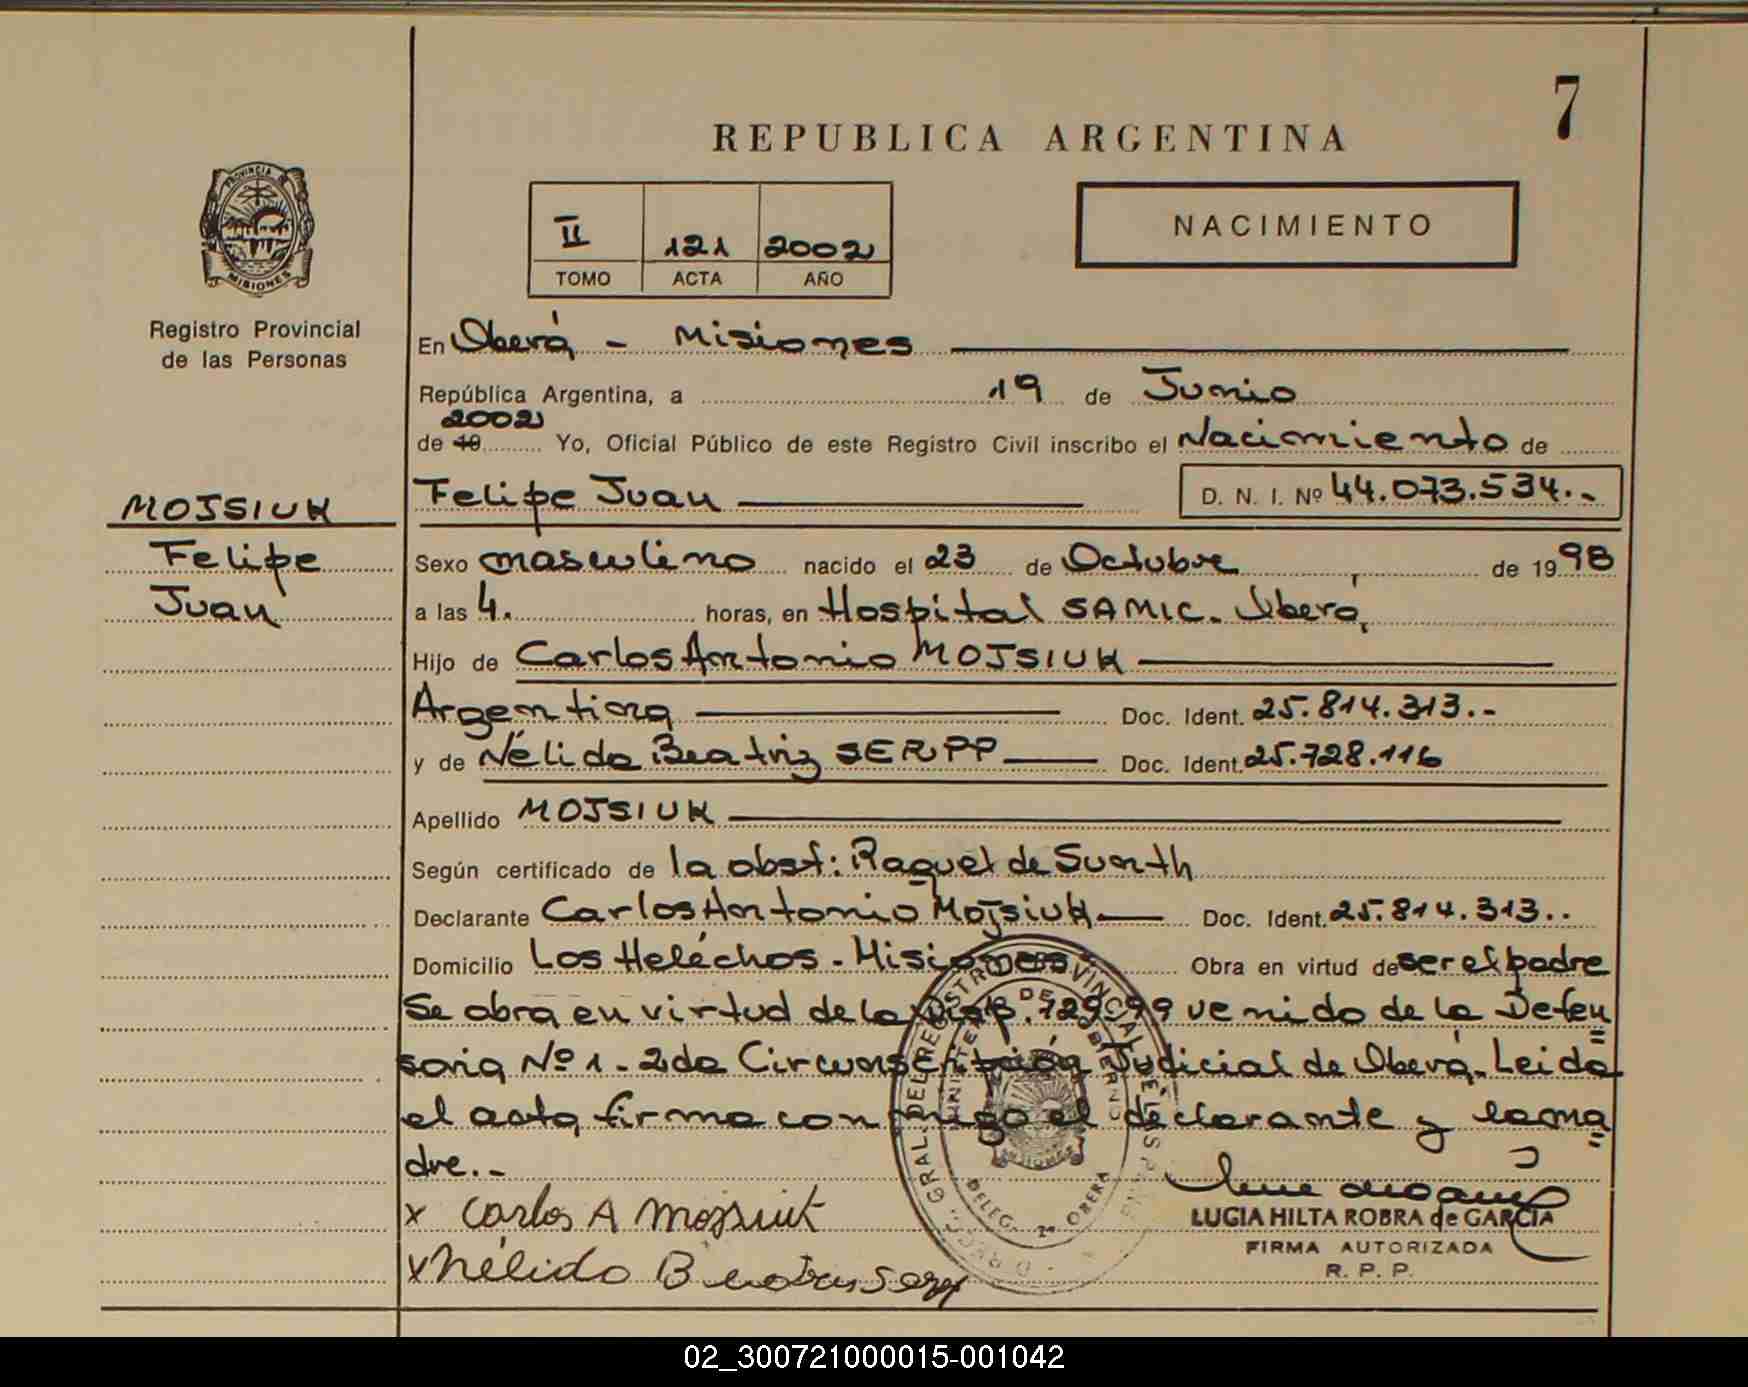 7
REPUBLICA ARGENTINA
II 121 2002
TOMO ACTA AÑO
NACIMIENTO
PROVINCIA DE
MISIONES
Registro Provincial
de las Personas
En Oberá - Misiones
República Argentina, a 19 de Junio
2002
de 19 Yo, Oficial Público de este Registro Civil inscribo el Nacimiento de
MOJSIUK
Felipe Juan D. N. I. Nº 44.073.534.-
Felipe
Sexo masculino nacido el 23 de Octubre de 1998
Juan
a las 4. horas, en Hospital SAMIC. Oberá
Hijo de Carlos Antonio MOJSIUK
Argentina Doc. Ident. 25.814.313.-
y de Nélida Beatriz SERPP Doc. Ident. 25.728.116
Apellido MOJSIUK
Según certificado de la obst: Raquel de
Declarante Carlos Antonio Mojsiuk Doc. Ident. 25.814.313..
Domicilio Los Heléchos - Misiones Obra en virtud de ser el padre
Se obra en virtud de la Disp. 729/99 venido de la Defen
soria Nº 1 - 2da Circunscripción Judicial de Oberá. Leida
el acta, firma con migo el declarante y la ma
dre..-
x Carlos A Mojsiuk
x Nélida B
LUGIA HILTA ROBRA de GARCIA
FIRMA AUTORIZADA
R. P. P.
MINISTERIO DE GOBIERNO
DELEG. OBERA
02_300721000015-001042